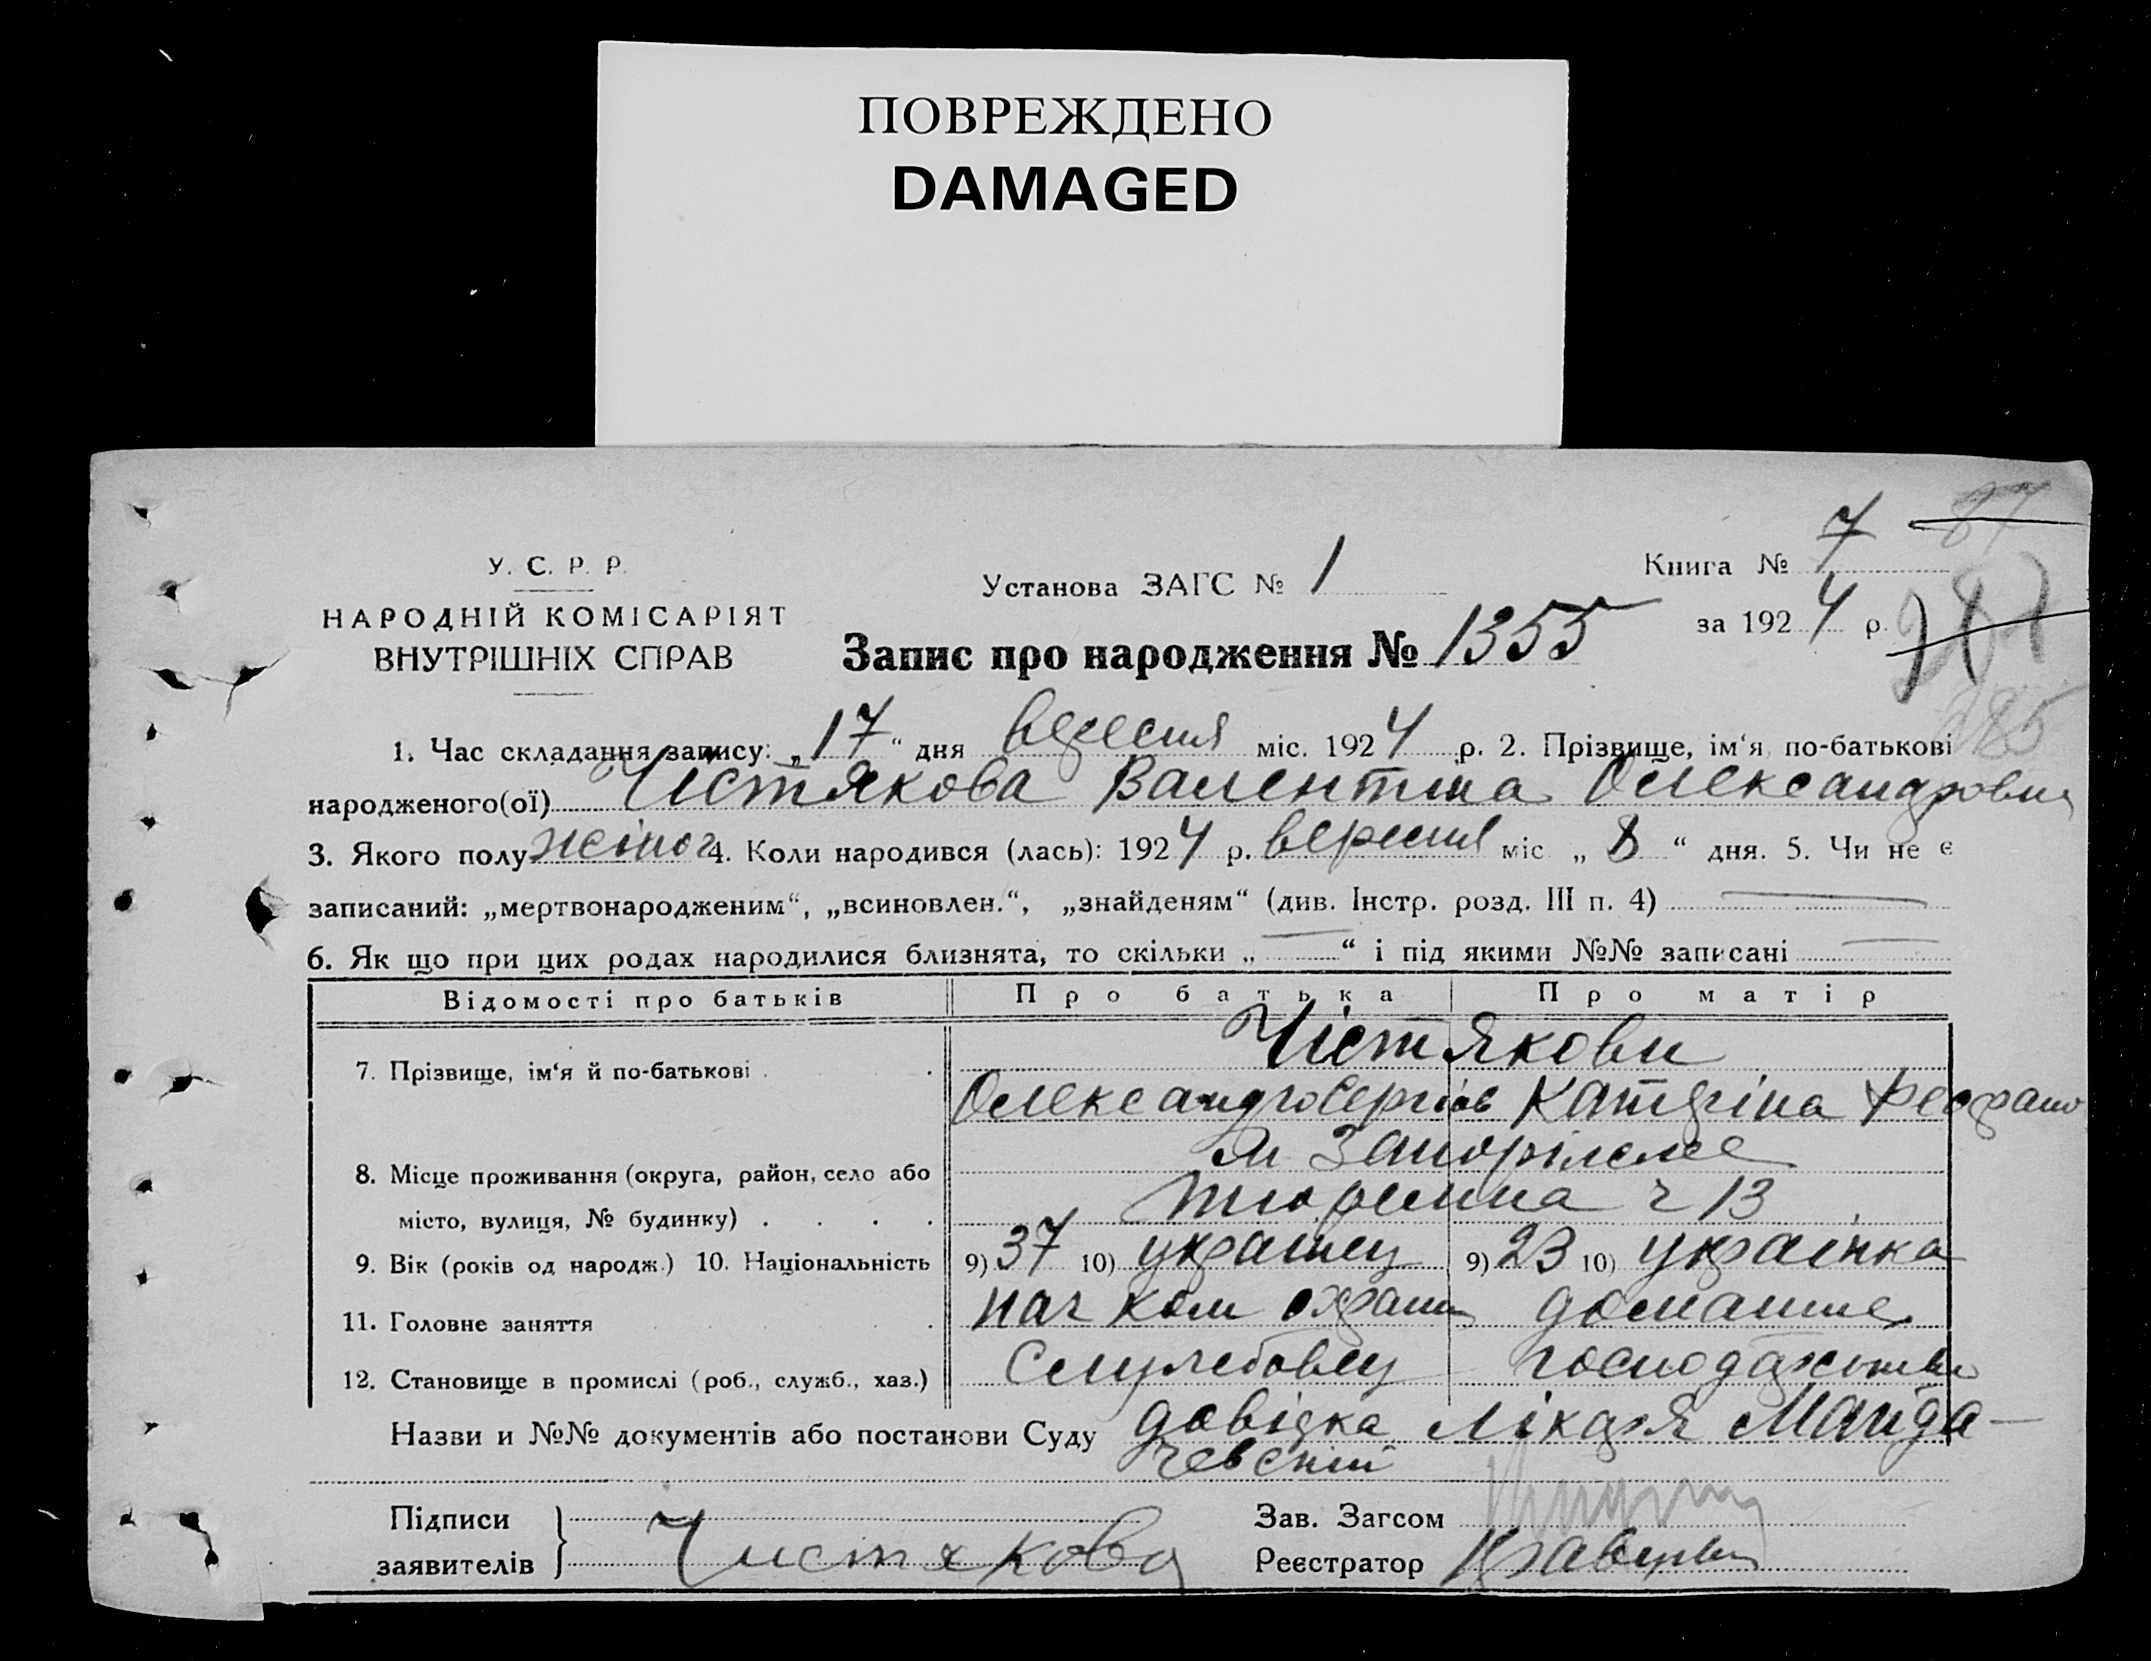 ПОВРЕЖДЕНО
DAMAGED
У. С. Р. Р.
НАРОДНІЙ КОМІСАРІЯТ
ВНУТРІШНІХ СПРАВ
Установа ЗАГС № 1
Книга № 7
за 1924 р.
Запис про народження № 1355
1. Час складання запису: „17“ дня вересня міс. 1924 р. 2. Прізвище, ім‘я по-батькові
народженого(ої) Чістякова Валентина Олександровна
3. Якого полу жіноч 4. Коли народився (лась): 1924 р. вересня міс „8“ дня. 5. Чи не є
записаний: „мертвонародженим“, „всиновлен.“, „знайденям“ (див. Інстр. розд. III п. 4)
6. Як що при цих родах народилися близнята, то скільки „ — “ і під якими №№ записані —
Відомості про батьків Про батька Про матір
7. Прізвище, ім‘я й по-батькові Чістякови
Олександр Сергіов Катеріна
8. Місце проживання (округа, район, село або м Запоріжжє
місто, вулиця, № будинку) ч 13
9. Вік (років од народж.) 10. Національність 9) 37 10) українец 9) 23 10) українка
11. Головне заняття нач ком охрани домашнє
12. Становище в промислі (роб., служб., хаз.) Служебовец господарство
Назви и №№ документів або постанови Суду довідка лікаря Майда-
чевський
Підписи
заявителів Чистякова
Зав. Загсом
Реєстратор